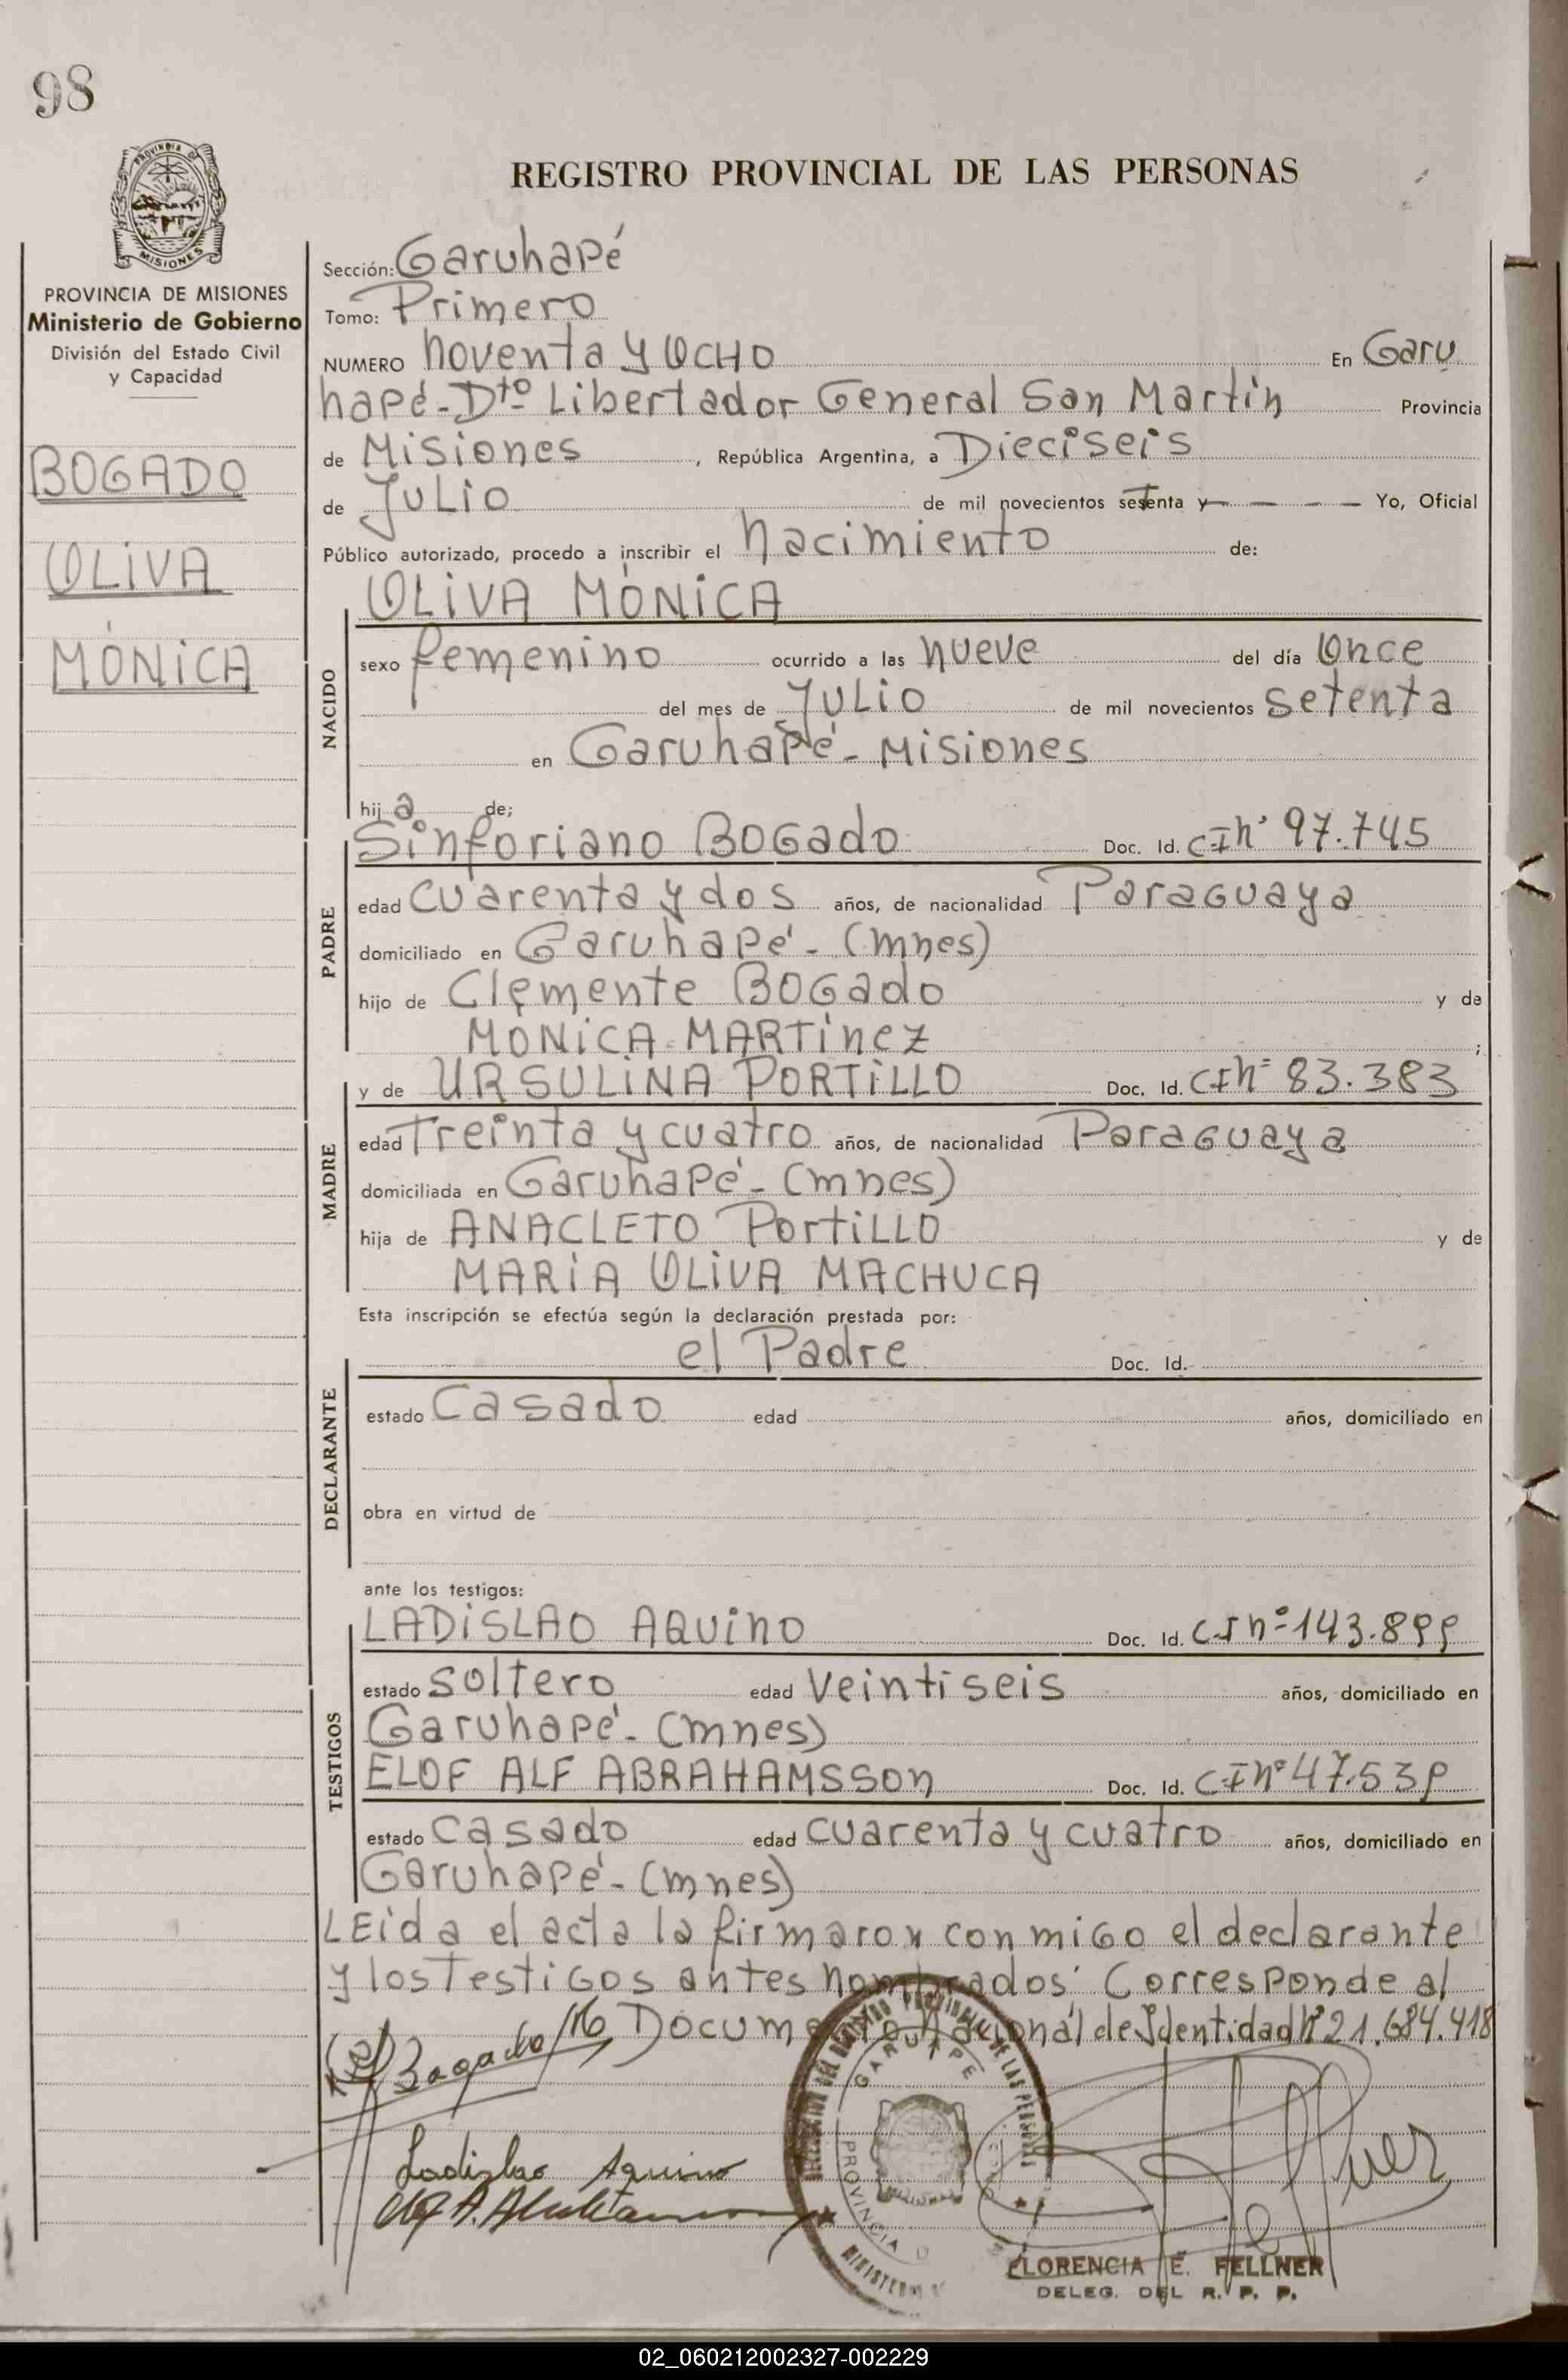 98
REGISTRO PROVINCIAL DE LAS PERSONAS
PROVINCIA DE MISIONES
Ministerio de Gobierno
División del Estado Civil
y Capacidad
BOGADO
OLiVA
MÓNiCA
Sección: Garuhapé
Tomo: Primero
NUMERO noventa y OCHO En Garu
hapé-Dto Libertador General San Martín Provincia
de Misiones, República Argentina, a Dieciseis
de JULiO de mil novecientos setenta y — — — — Yo, Oficial
Público autorizado, procedo a inscribir el nacimiento de:
OLiVA MÓNiCA
NACIDO
sexo femenino ocurrido a las nueve del día Once
del mes de JULiO de mil novecientos setenta
en Garuhapé - Misiones
hija de;
PADRE
Sinforiano BOGado Doc. Id. CI nº 97.745
edad cuarenta y dos años, de nacionalidad Paraguaya
domiciliado en Garuhapé - (mnes)
hijo de Clemente BOGado y de
MONiCA MARTínez ;
MADRE
y de URSULiNA PORTiLLO Doc. Id. CI nº 83.383
edad Treinta y cuatro años, de nacionalidad Paraguaya
domiciliada en Garuhapé - (mnes)
hija de ANACLETO PortiLLO y de
MARiA OLiVA MACHUCA
Esta inscripción se efectúa según la declaración prestada por:
DECLARANTE
el Padre Doc. Id.
estado Casado edad años, domiciliado en
obra en virtud de
ante los testigos:
TESTIGOS
LADiSLAO AQUiNO Doc. Id. CI nº 143.899
estado soltero edad veintiseis años, domiciliado en
Garuhapé - (mnes)
ELOF ALF ABRAHAMSSON Doc. Id. CI nº 47.539
estado Casado edad cuarenta y cuatro años, domiciliado en
Garuhapé - (mnes)
LEida el acta la firmaron conmigo el declarante
y los Testigos antes nombrados. Corresponde al
Documento Nacional de Identidad Nº 21.684.418
Bogado
Ladislao Aquino
GARUHAPE
PROVINCIA D
MINISTERIO
FLORENCIA E. FELLNER
DELEG. DEL R. P. P.
02_060212002327-002229